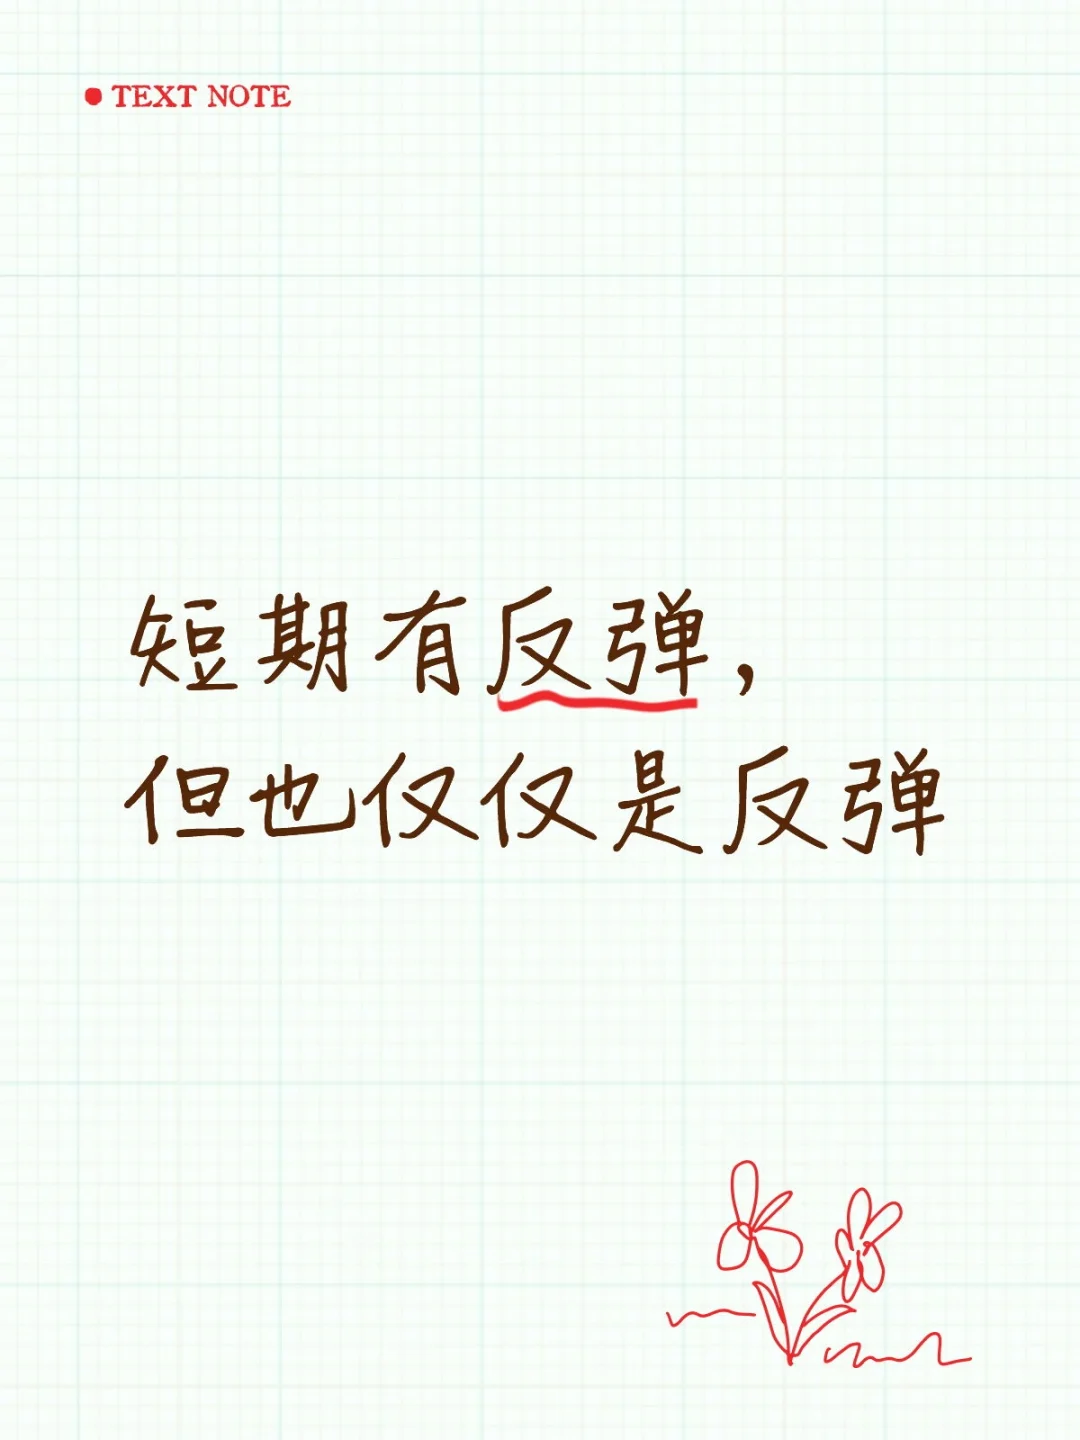 TEXT NOTE
短期有反弹，
但也仅仅是反弹